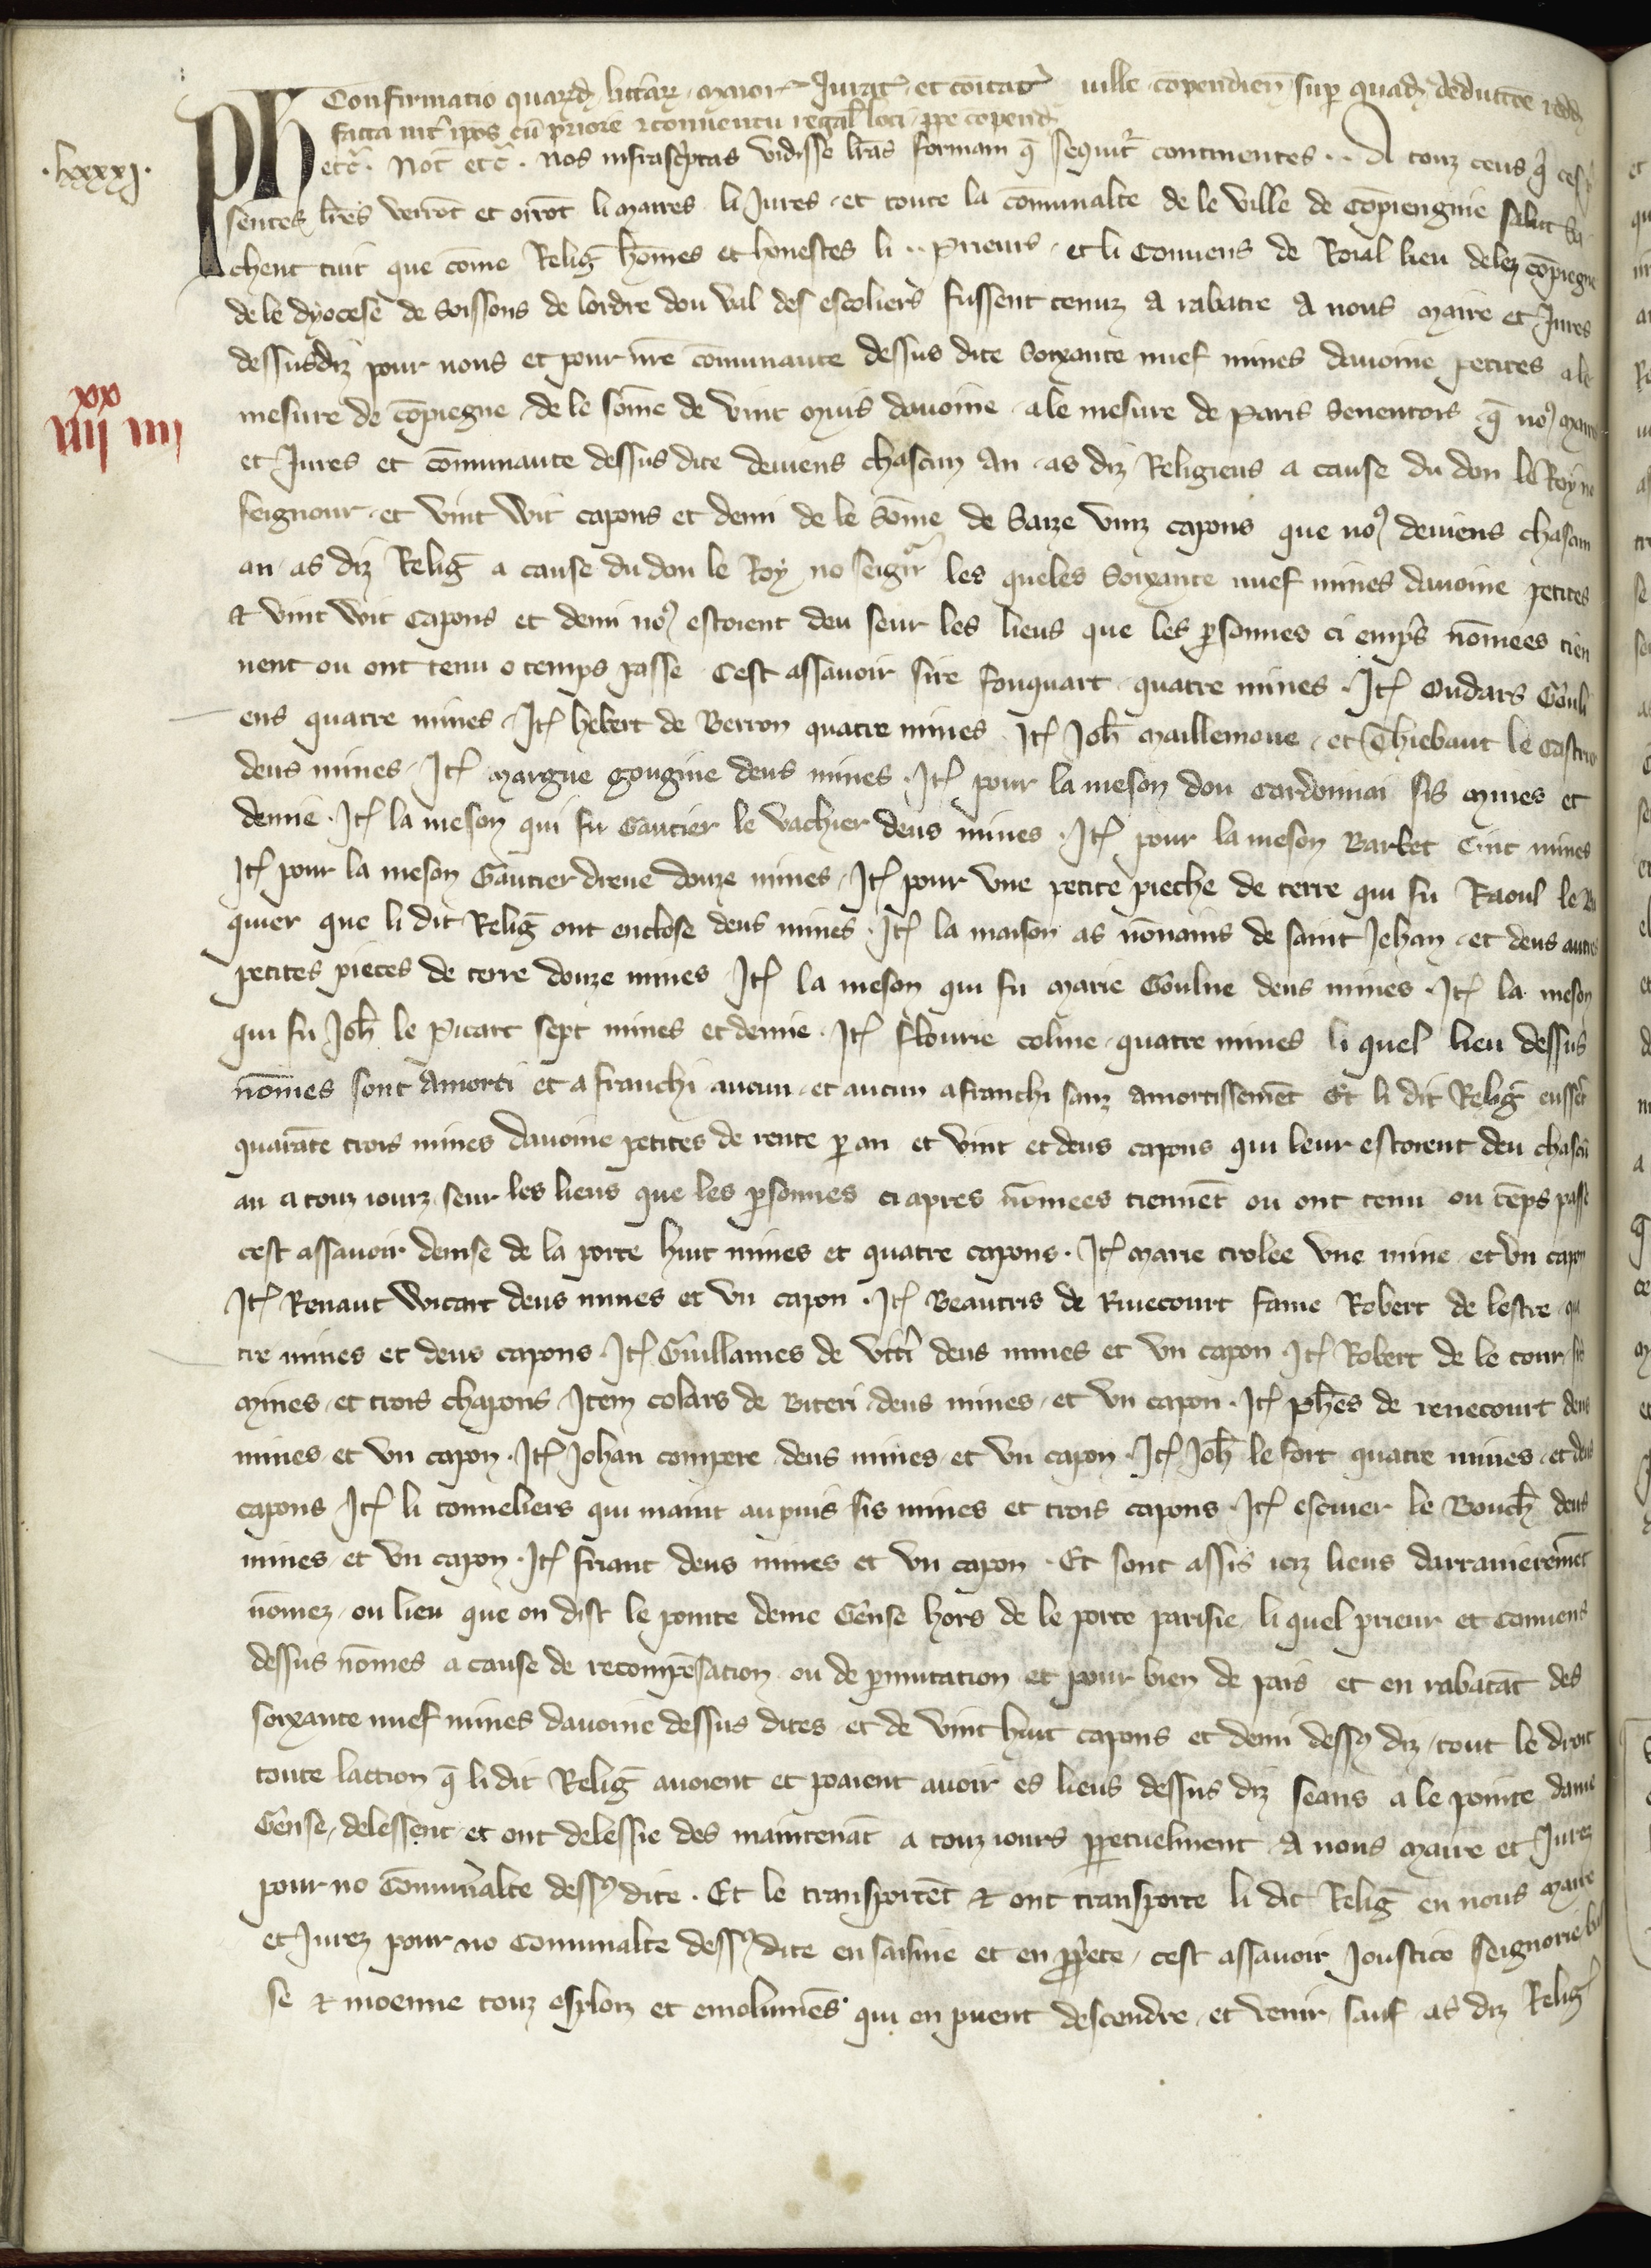 Confirmatio quarūdā litterar maior Jurat et cōitat ville compendien sup quad deductōe redd
facta int ipos cū priore et conuentu regal loci ppe copend
.lxxxj.
PH etc̄. Not̄ etc̄. Nos infrascptas vidisse lras formam q̄ sequit̄ continentes .. A touz ceus q̄ ces p
sentes lres verrōt et orrōt li maires li Jures et toute la cōmunalte de le ville de Cōpiengne salut Sa
chent tuit que cōme Reliḡ hōmes et honestes li .. prieurs et li Conuens de Roial lieu delez cōpiegne
de le dyocese de Soissons de lordre dou val des escoliers fussent tenuz a rabatre A nous maire et Jures
dessusdiz pour nous et pour nre cōmunaute dessus dite Soixante nuef mines dauoine petites a le
mesure de cōpiegne de le sōme de vint muis dauoine a le mesure de Paris Seuentois q̄ no⁹ maire
xx
iiij iiij
et Jures et cōmunaute dessus dite deuiens chascun An as diz Religieus a cause du don le Roy no
seigneur et vint wit capons et demi de le Sōme de Saize vinz capons que no⁹ deuiens chascun
an as diz Reliḡ a cause du don le Roy no seigr les queles Soixante nuef mines dauoine petites
et vint wit capons et demi no⁹ estoient deu seur les lieus que les psonnes ci emps nōmees tien
nent ou ont tenu o temps passe Cest assauoir sire Fouquart quatre mines . Itē Oudars Gouli
ens quatre mines . Itē hebert de Berron quatre mines Itē Joh̄ maillemoue et Thiebaut le Castrier
deus mines . Itē margue gougine deus mines . Itē pour la meson dou cardonnai sis mines et
demie . Itē la meson qui fu Gautier le vachier deus mines . Itē pour la meson Barbet Cinc mines
Itē pour la meson Gautier dreue douze mines . Itē pour vne petite pieche de terre qui fu Raoul le
quier que li dit Reliḡ ont enclose deus mines . Itē la maison as nōnains de saint Jehan et deus autres
petites pieces de terre douze mines Itē la meson qui fu marie Goulue deus mines . Itē la meson
qui fu Joh̄ le Picart sept mines et demie . Itē Flourie coline quatre mines li quel lieu dessus
nōmes sont Amorti et a franchi aucun et aucun afranchi sanz amortissemēt Et li dit Reliḡ eussēt
quarāte trois mines dauoine petites de rente p an et vint et deus capons qui leur estoient deu chascū
an a touz iourz seur les lieus que les psonnes ci apres nōmees tiennēt ou ont tenu ou tēps passe
cest assauoir denise de la porte huit mines et quatre capons . Itē marie crolee vne mine et vn capon
Itē Renaut Wicart deus mines et vn capon . Itē Beautris de Riuecourt fame Robert de lestre qua
tre mines et deus capons . Itē Guillames de vitri deus mines et vn capon . Itē Robert de le cour sis
mines et trois chapons Item colars de Biteri deus mines et vn capon . Itē phēs de reuecourt deus
mines et vn capon . Itē Johan compere deus mines et vn capon . Itē Joh̄ le fort quatre mines et deus
capons Itē li tonneliers qui maint au puis sis mines et trois capons . Itē escuier le Bouch̄ deus
mines et vn capon . Itē friant deus mines et vn capon . Et sont assis icez lieus darrainieremēt
nōmez ou lieu que on dist le pointe dame Gense hors de le porte parisie li quel prieur et conuens
dessus nōmes a cause de recompēsation ou de pmutation et pour bien de pais et en rabatāt des
soixante nuef mines dauoine dessus dites et de vint huit capons et demi dess⁹ diz tout le droit
toute laction q̄ li dit Reliḡ auoient et poaient auoir es lieus dessus diz seans a le pointe dame
Gense delessent et ont delessie des maintenāt a touz iours ppetuelment A nous maire et Jurez
pour no Cōmunalte dess⁹ dite . Et le transportēt et ont transporte li dit Reliḡ en nous maire
et Jurez pour no Comunalte dess⁹ dite en saisine et en ppete cest assauoir Joustice seignorie bas
se et moenne touz esploiz et emolumēs qui en puent descendre et venir sauf as diz Reliḡ